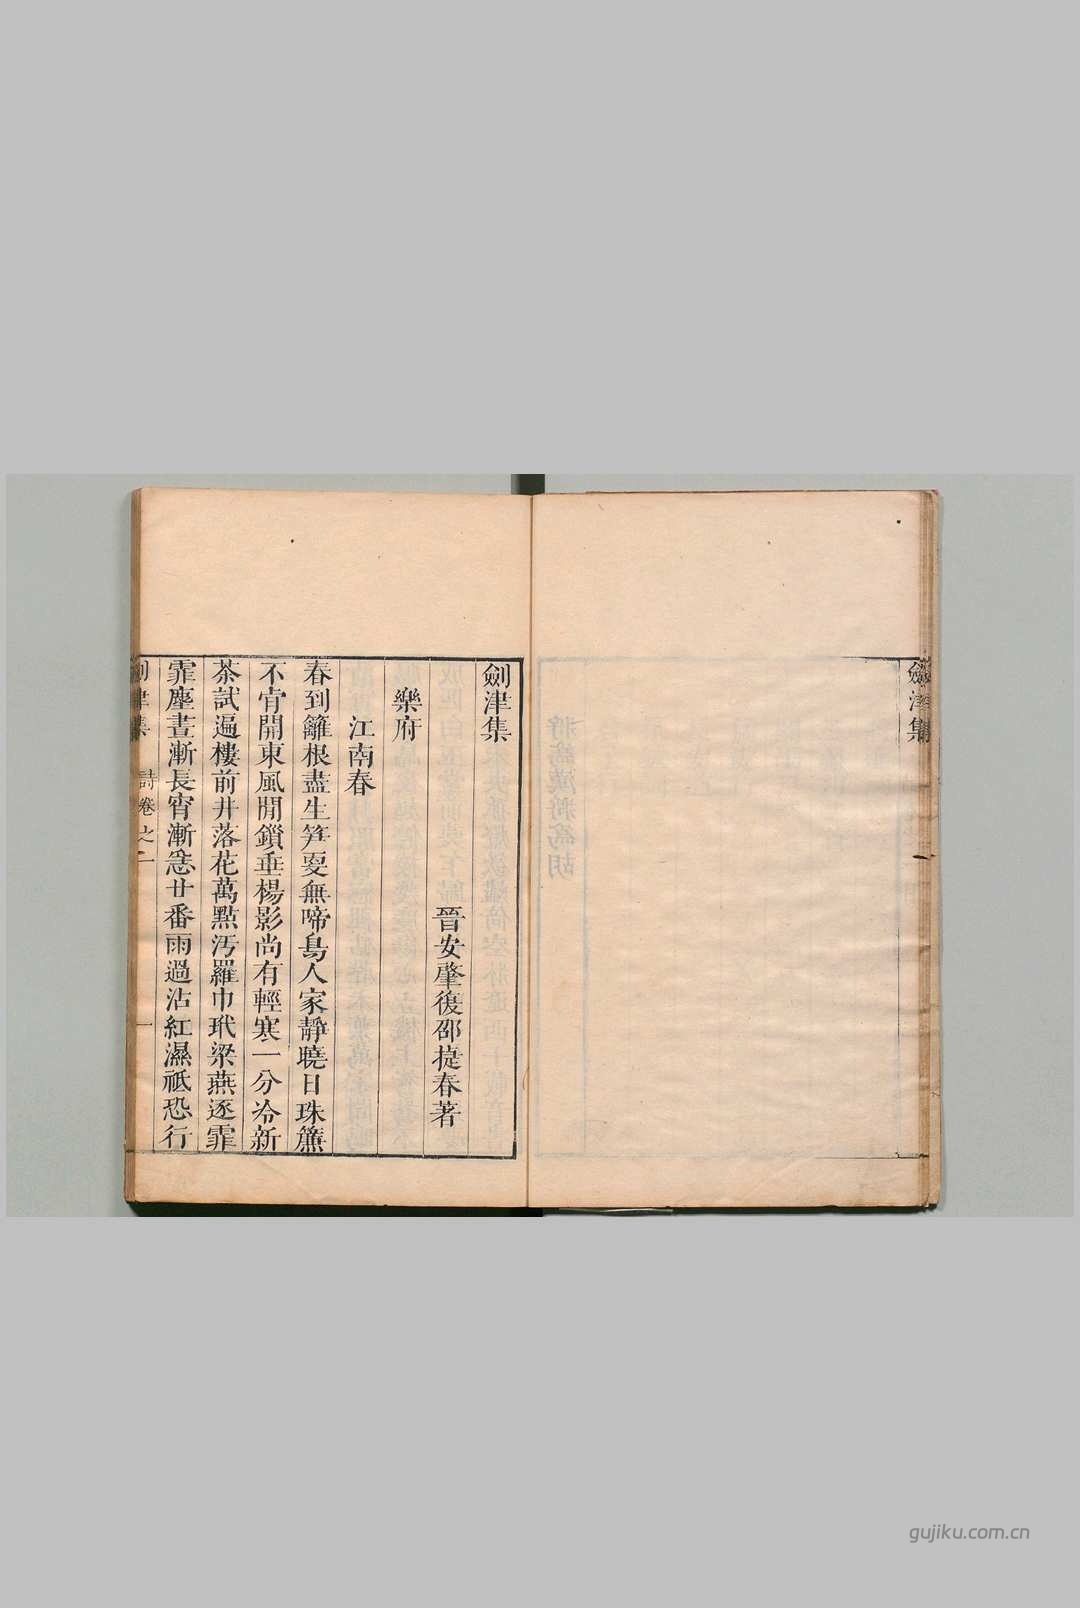 劍津集
劍津集
晉安肇復邵捷春著
樂府
江南春
春到籬根盡生笋更無啼鳥人家靜曉日珠簾
不肯開東風閒鎖垂楊影尚有輕寒一分冷新
茶試遍樓前井落花萬點汚羅巾玳梁燕逐霏
霏塵晝漸長宵漸急廿番雨過沾紅濕祗恐行
劍津集 詩卷之一 一
gujiku.com.cn